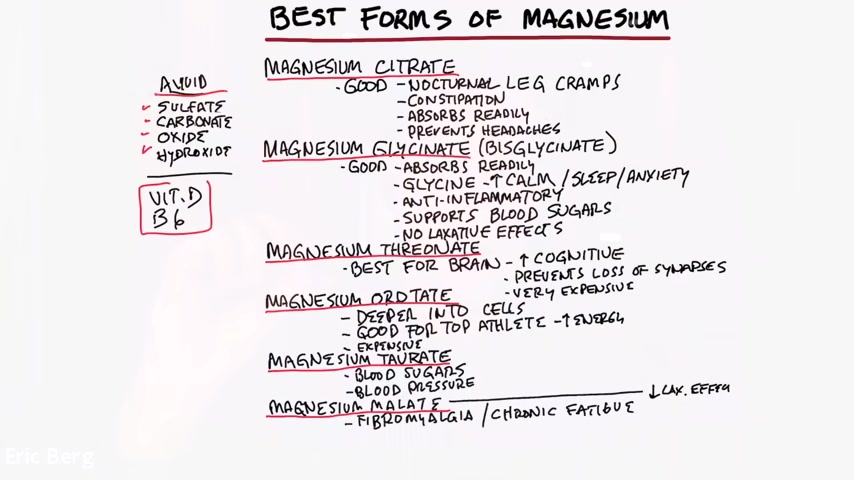 BEST FORMS OF MAGNESIUM
AVOID
SULFATE
CARBONATE
OXIDE
HYDROXIDE
VIT.D
B6
MAGNESIUM CITRATE
·GOOD -NOCTURNAL LEG CRAMPS
-CONSTIPATION
-ABSORBS READILY
-PREVENTS HEADACHES
MAGNESIUM GLYCINATE (BISGLYCINATE)
·GOOD -ABSORBS READILY
-GLYCINE -↑CALM/SLEEP/ANXIETY
-ANTI-INFLAMMATORY
-SUPPORTS BLOOD SUGARS
-NO LAXATIVE EFFECTS
MAGNESIUM THREONATE
·BEST FOR BRAIN -↑COGNITIVE
·PREVENTS LOSS OF SYNAPSES
·VERY EXPENSIVE
MAGNESIUM OROTATE
- DEEPER INTO CELLS
- GOOD FOR TOP ATHLETE -↑ENERGY
- EXPENSIVE
MAGNESIUM TAURATE
·BLOOD SUGARS
-BLOOD PRESSURE
MAGNESIUM MALATE ↓LAX. EFFECT
- FIBROMYALGIA/CHRONIC FATIGUE
Eric Berg